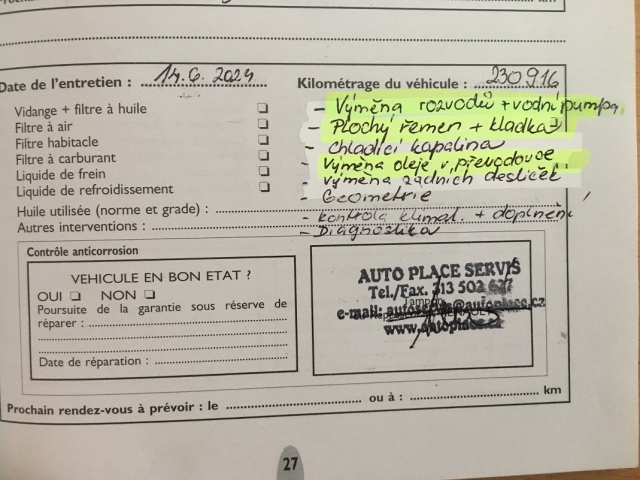 km
Date de l'entretien : 14.6.2024 Kilométrage du véhicule : 230916
Vidange + filtre à huile
Filtre à air
Filtre habitacle
Filtre à carburant
Liquide de frein
Liquide de refroidissement
- Výměna rozvodů + vodní pumpa
- Plochý řemen + kladka
- chladící kapalina
- Výměna oleje v převodovce
- výměna zadních destiček
- Geometrie
Huile utilisée (norme et grade) :
- kontrola klimat. + doplnění
Autres interventions :
- Diagnostika
Contrôle anticorrosion
VEHICULE EN BON ETAT ?
OUI NON
Poursuite de la garantie sous réserve de
réparer :
Date de réparation :
AUTO PLACE SERVIS
Tel./Fax. 313 502 677
Tampon
e-mail: autoservis@autoplace.cz
www.autoplace.cz
Prochain rendez-vous à prévoir : le ou à : km
27